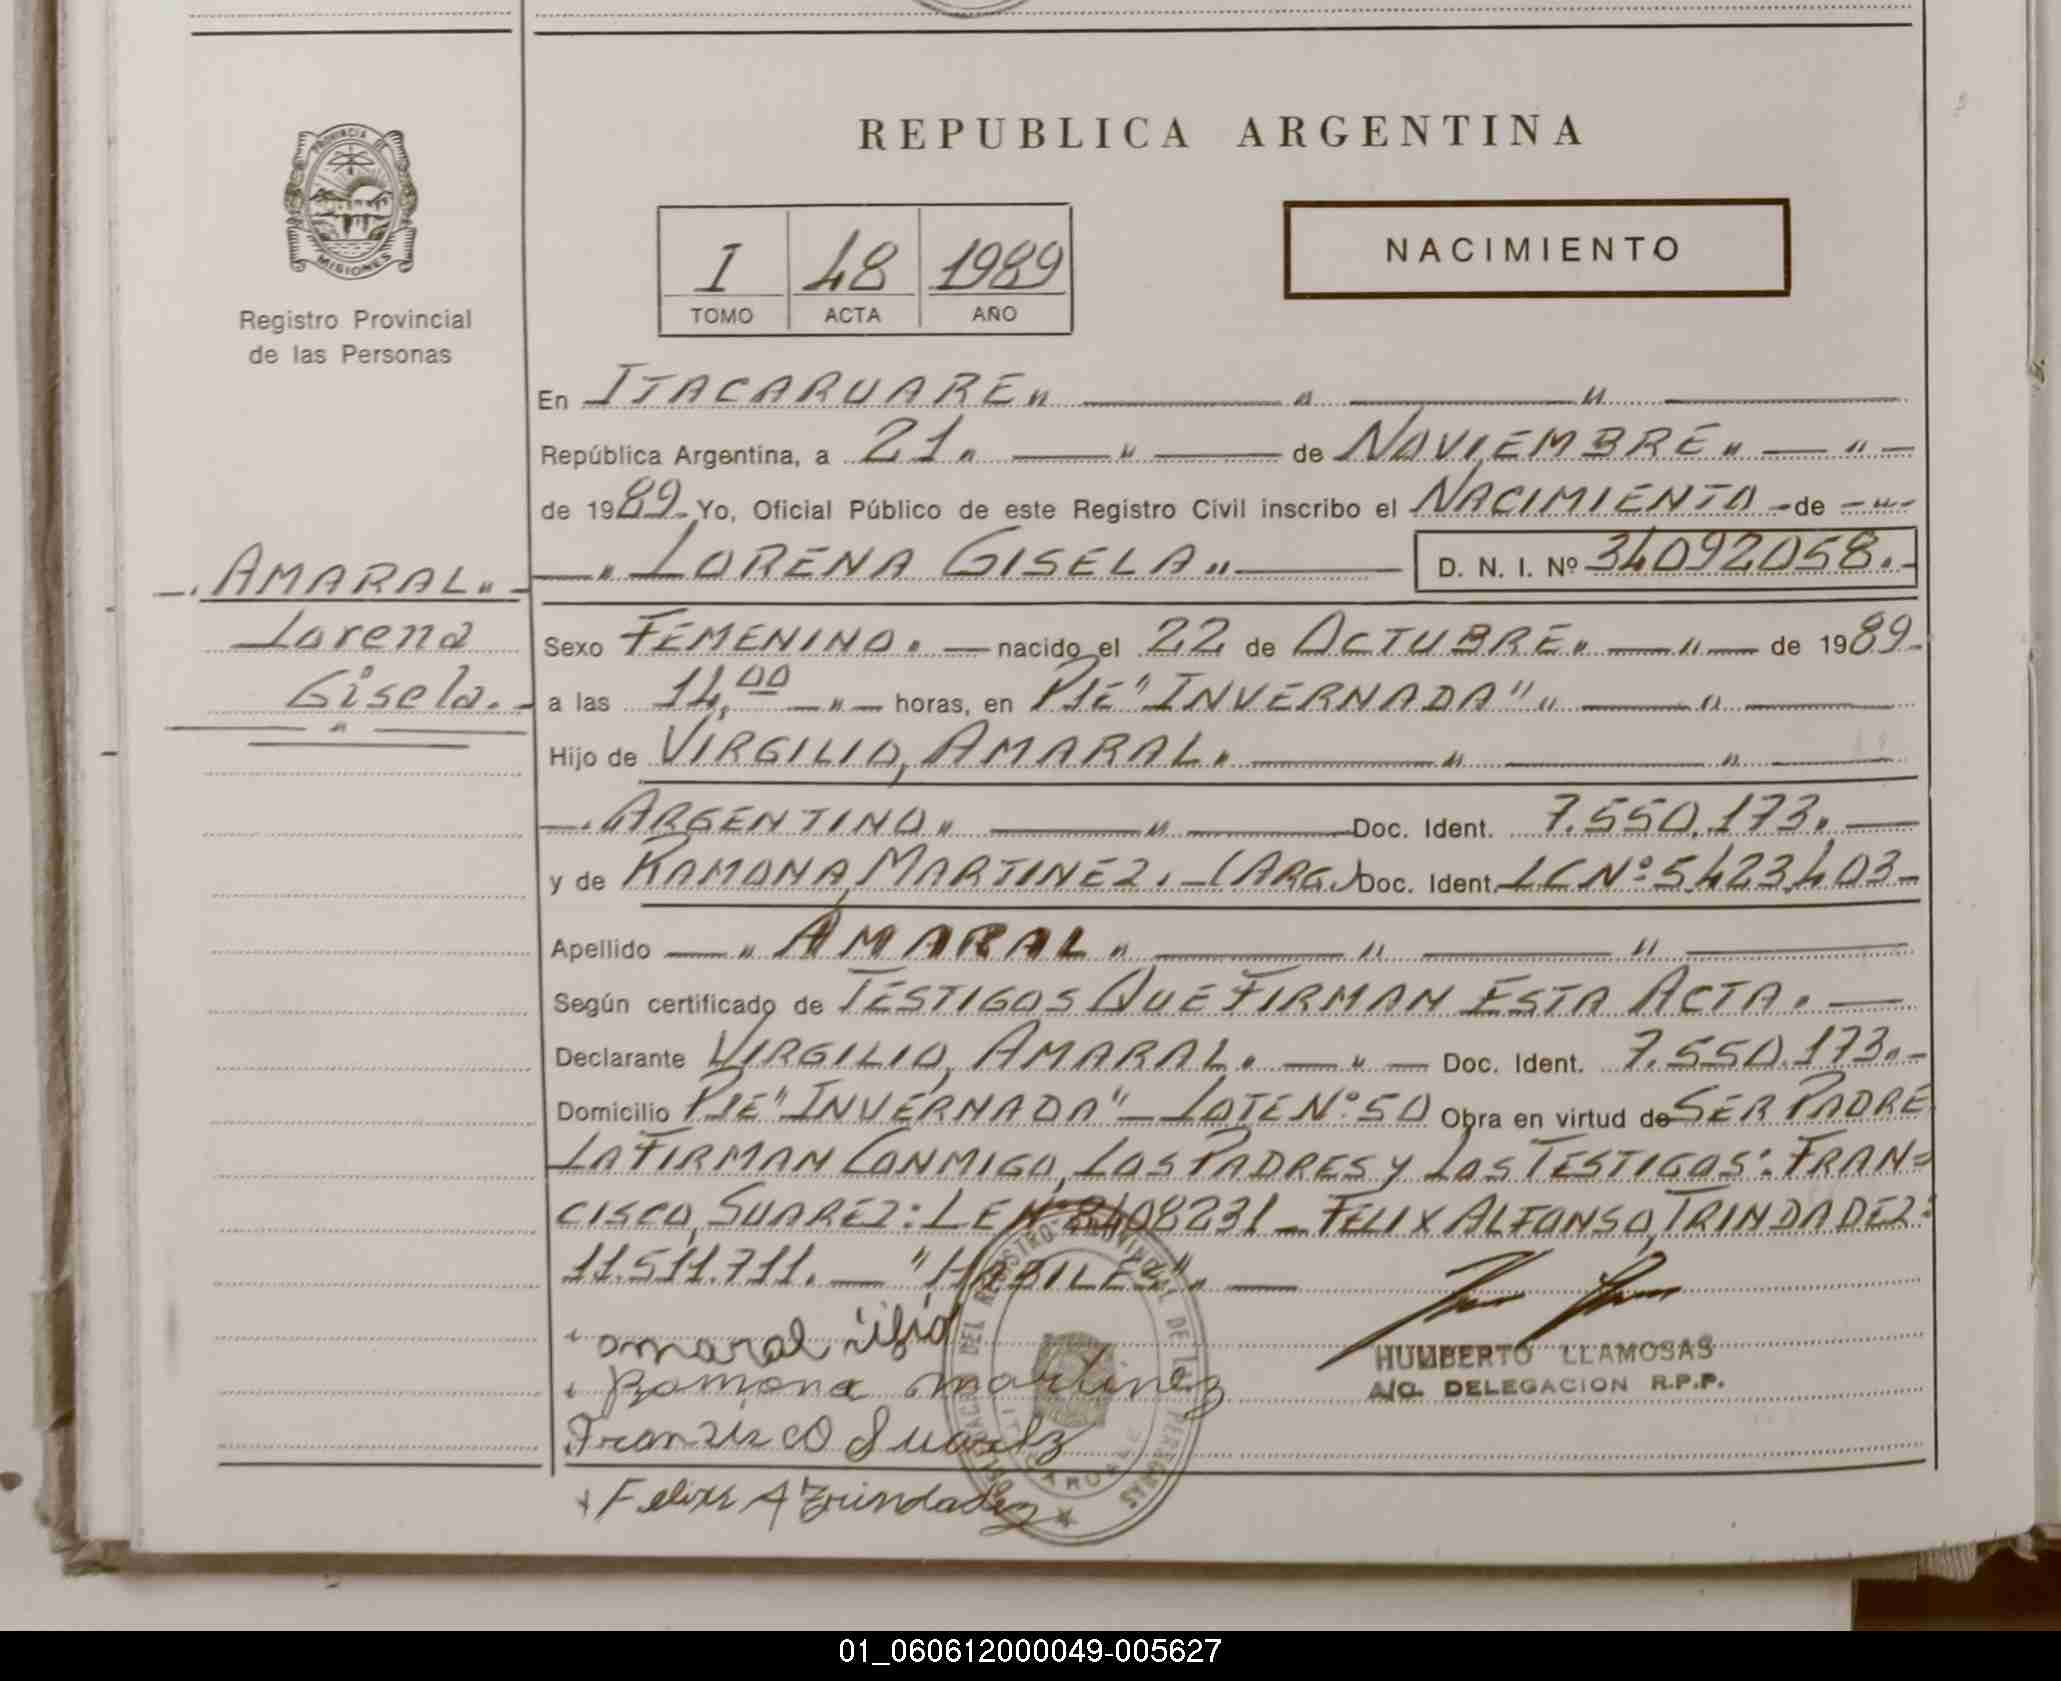 REPUBLICA ARGENTINA
PROVINCIA DE
MISIONES
Registro Provincial
de las Personas
I 48 1989
TOMO ACTA AÑO
NACIMIENTO
En ITACARUARE" — " — " —
República Argentina, a 21 " — " — de NOVIEMBRE " — " —
de 1989. Yo, Oficial Público de este Registro Civil inscribo el NACIMIENTO - de - " -
— " LORENA GISELA " — D. N. I. Nº 34092058. -
—. AMARAL " -
Lorena
Gisela. -
— " —
Sexo FEMENINO. — nacido el 22 de OCTUBRE " — " — de 1989.
a las 14,00 — " — horas, en PJE "INVERNADA" " — " —
Hijo de VIRGILIO, AMARAL. — " — " —
—. ARGENTINO " — " — Doc. Ident. 7.550.173. —
y de RAMONA, MARTINEZ. - (ARG.) Doc. Ident. LC Nº: 5.423.403 -
Apellido — " AMARAL " — " — " —
Según certificado de TESTIGOS QUE FIRMAN ESTA ACTA. —
Declarante VIRGILIO, AMARAL. — " — Doc. Ident. 7.550.173. -
Domicilio PJE "INVERNADA" - LOTE Nº: 50 Obra en virtud de SER PADRE
LA FIRMAN CONMIGO, LOS PADRES Y LOS TESTIGOS: FRAN=
CISCO, SUAREZ: LE Nº 8408231 - FELIX ALFONSO, TRINDADEZ:
11.511.711. — "HABILES". —
amaral
Ramona martinez
HUMBERTO LLAMOSAS
A/C. DELEGACION R.P.P.
Francisco Suarez
Felix A Trindadez
DEL REGISTRO PROVINCIAL DE LAS PERSONAS
01_060612000049-005627